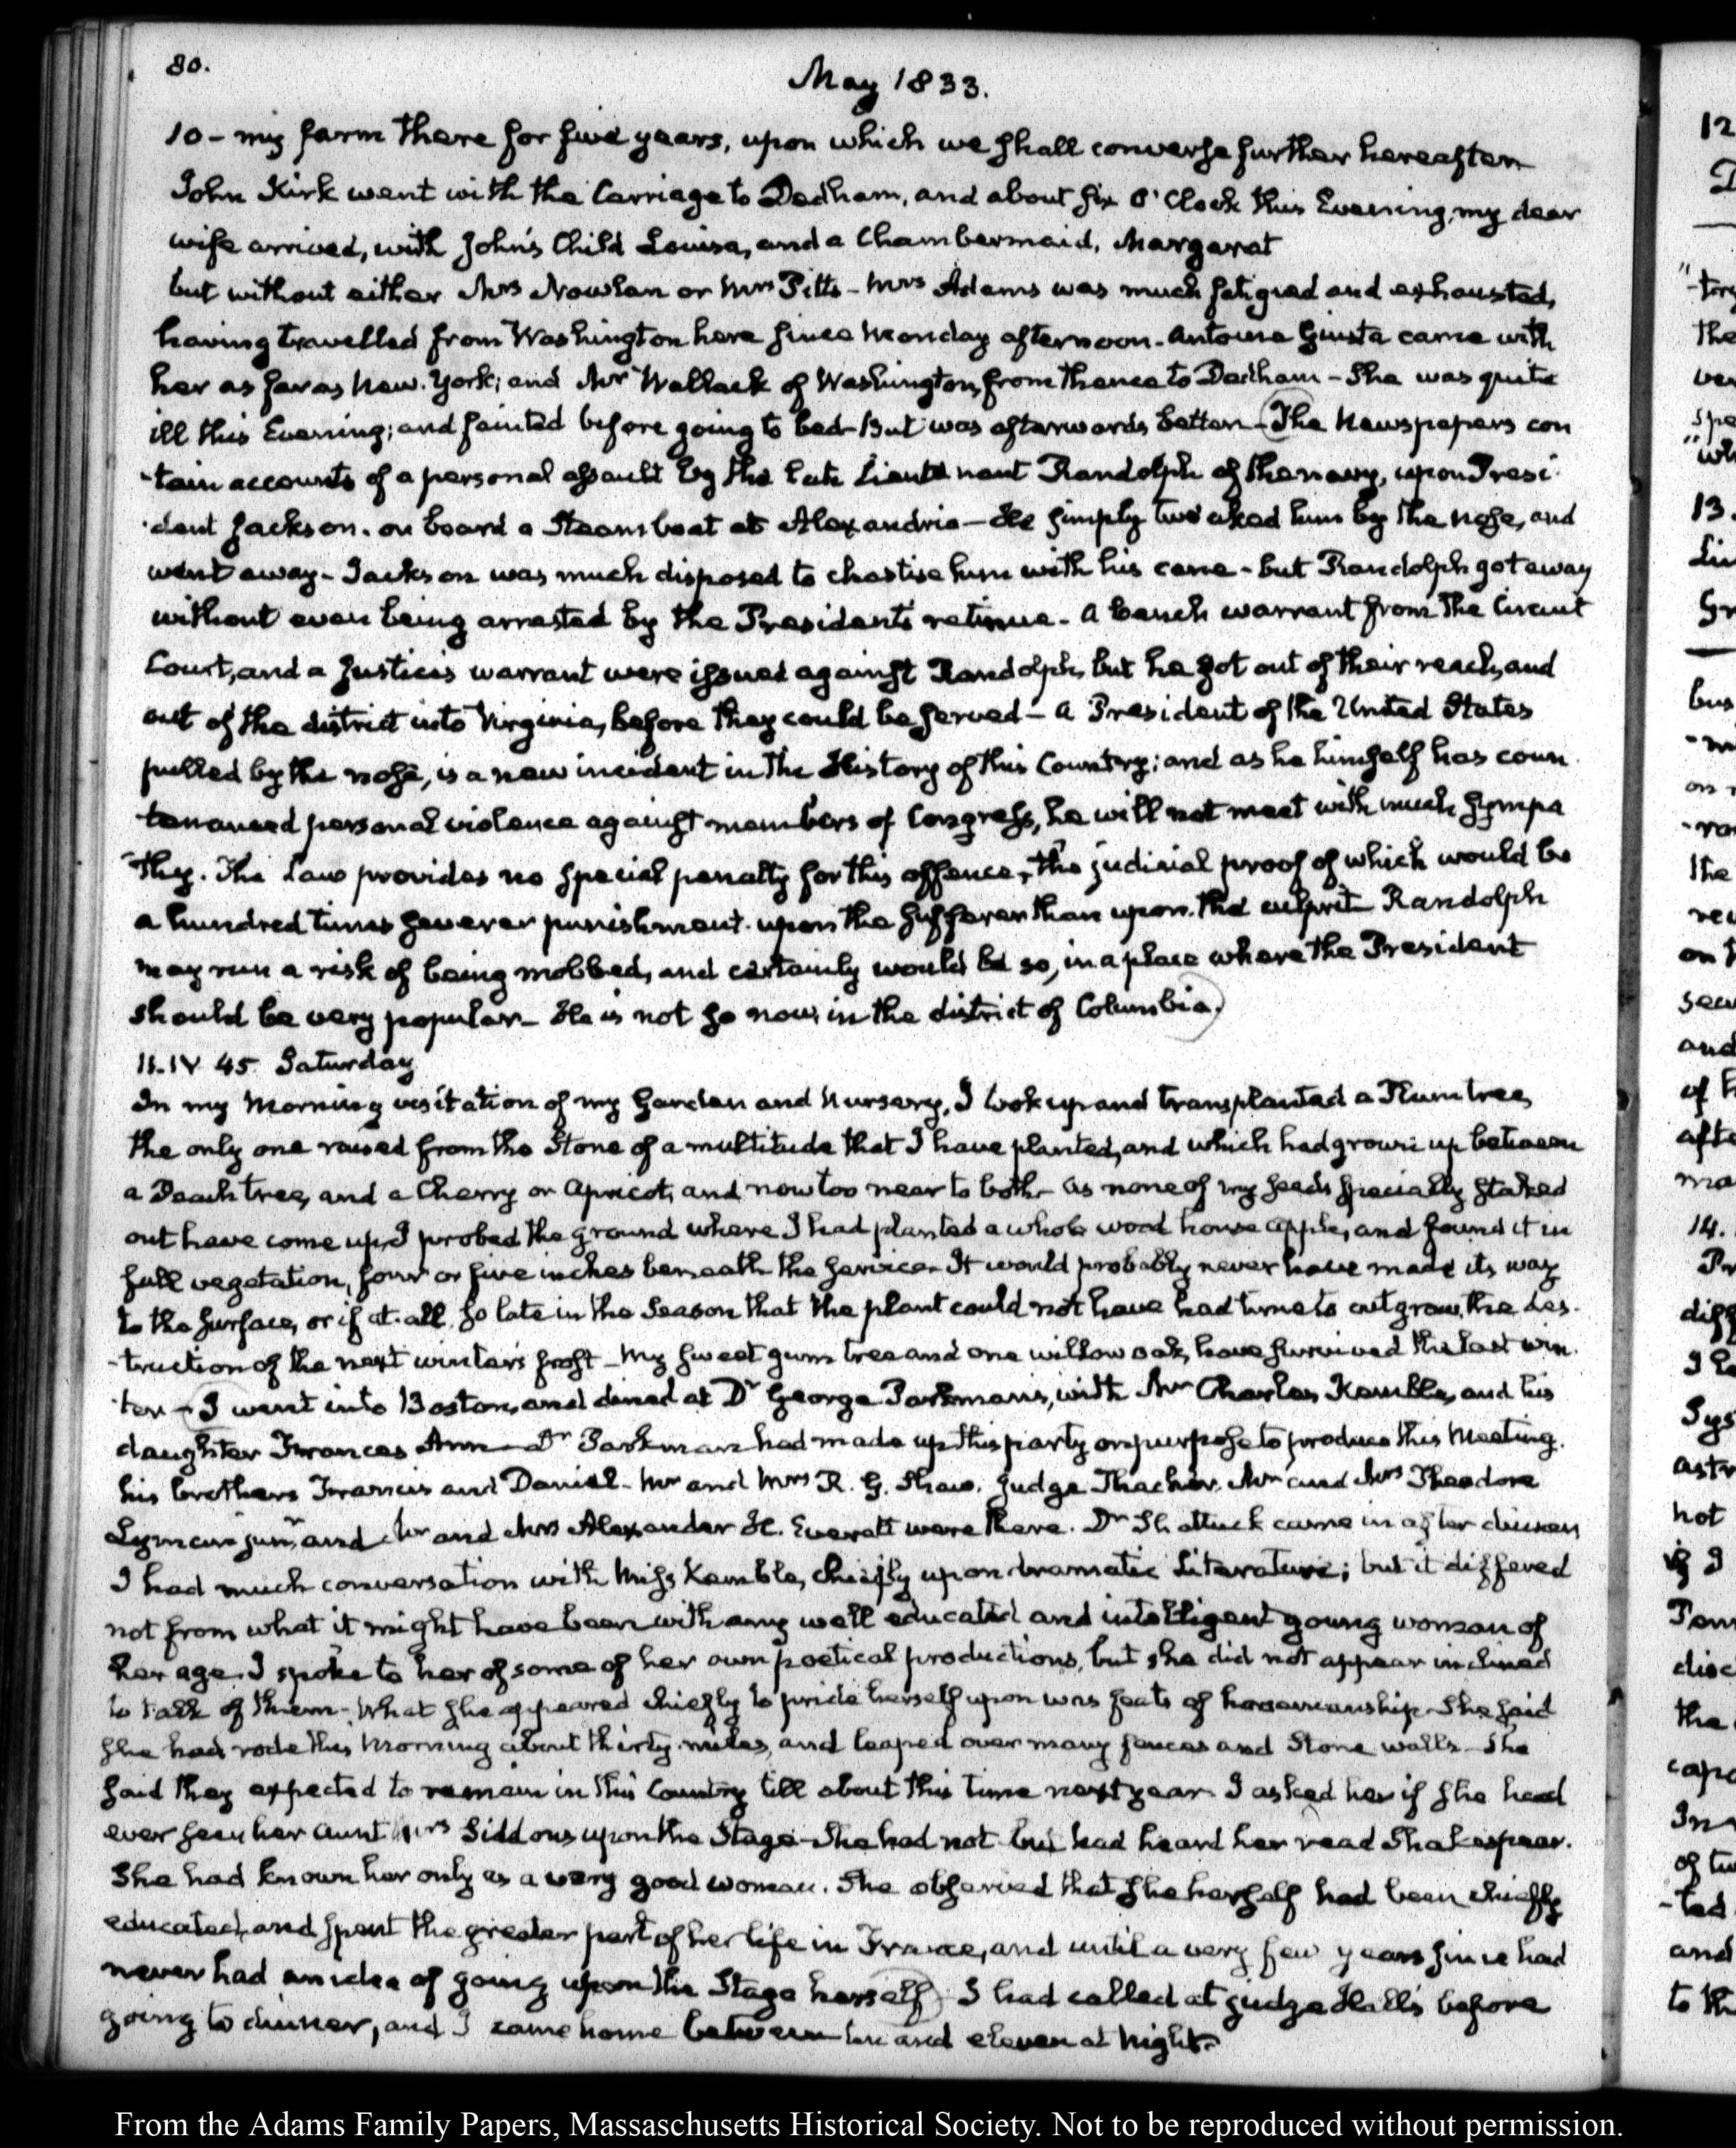 80.
May 1833.
10 - my farm there for five years, upon which we shall converse further hereafter
John Kirk went with the Carriage to Dedham, and about six O'Clock this Evening, my dear
wife arrived, with John's Child Louisa, and a Chambermaid, Margaret
but without either Mrs Nowlan or Mrs Pitts - Mrs Adams was much fatigued and exhausted,
having travelled from Washington here since Monday afternoon. Antoine Giusta came with
her as far as New-York; and Mr Wallack of Washington, from thence to Dedham - She was quite
ill this Evening; and fainted before going to bed - But was afterwards better - The Newspapers con
-tain accounts of a personal assault by the late Lieutenant Randolph of the navy, upon Presi-
-dent Jackson. on board a Steam boat at Alexandria - He simply tweaked him by the nose, and
went away - Jackson was much disposed to chastise him with his cane - but Randolph got away
without even being arrested by the President's retinue - a bench warrant from the Circuit
Court, and a Justice's warrant were issued against Randolph, but he got out of their reach, and
out of the district into Virginia, before they could be served - a President of the United States
pulled by the nose, is a new incident in the History of this Country; and as he himself has coun
tenanced personal violence against members of Congress, he will not meet with much sympa
-thy. The Law provides no special penalty for this offence, the judicial proof of which would be
a hundred times severer punishment upon the sufferer than upon the culprit Randolph
may run a risk of being mobbed, and certainly would be so, in a place where the President
should be very popular - He is not so now, in the district of Columbia.
11. IV 45. Saturday
In my Morning visitation of my Garden and Nursery, I took up and transplanted a Plum tree,
the only one raised from the Stone of a multitude that I have planted, and which had grown up between
a Peach tree, and a Cherry or Apricot, and now too near to both - as none of my seeds specially staked
out have come up, I probed the ground where I had planted a whole wood house apple, and found it in
full vegetation, four or five inches beneath the service - It would probably never have made its way
to the surface, or if at all so late in the Season that the plant could not have had time to outgrow the des-
-truction of the next winter's frost - My sweet gum tree and one willow oak, have survived the last win-
-ter - I went into Boston, and dined at Dr George Parkman's, with Mr Charles Kemble, and his
daughter Frances Ann - Dr Parkman had made up this party on purpose to produce this Meeting.
his brothers Francis and Daniel - Mr and Mrs R. G. Shaw. Judge Thacher, Mr and Mrs Theodore
Lyman junr. and Mr and Mrs Alexander H. Everett were there. Dr Shattuck came in after dinner,
I had much conversation with Miss Kemble, chiefly upon dramatic Literature; but it differed
not from what it might have been with any well educated and intelligent young woman of
her age. I spoke to her of some of her own poetical productions, but she did not appear inclined
to talk of them - What she appeared chiefly to pride herself upon was feats of horsemanship - She said
she had rode this Morning about thirty miles, and leaped over many fences and Stone walls - She
said they expected to remain in this Country till about this time next year. I asked her if she had
ever seen her aunt Mrs Siddons upon the Stage - She had not but had heard her read Shakespear.
She had known her only as a very good woman. She observed that she herself had been chiefly
educated, and spent the greater part of her life in France, and until a very few years since had
never had an idea of going upon the Stage herself. I had called at Judge Hall's before
going to dinner, and I came home between ten and eleven at Night.
From the Adams Family Papers, Massachusetts Historical Society. Not to be reproduced without permission.